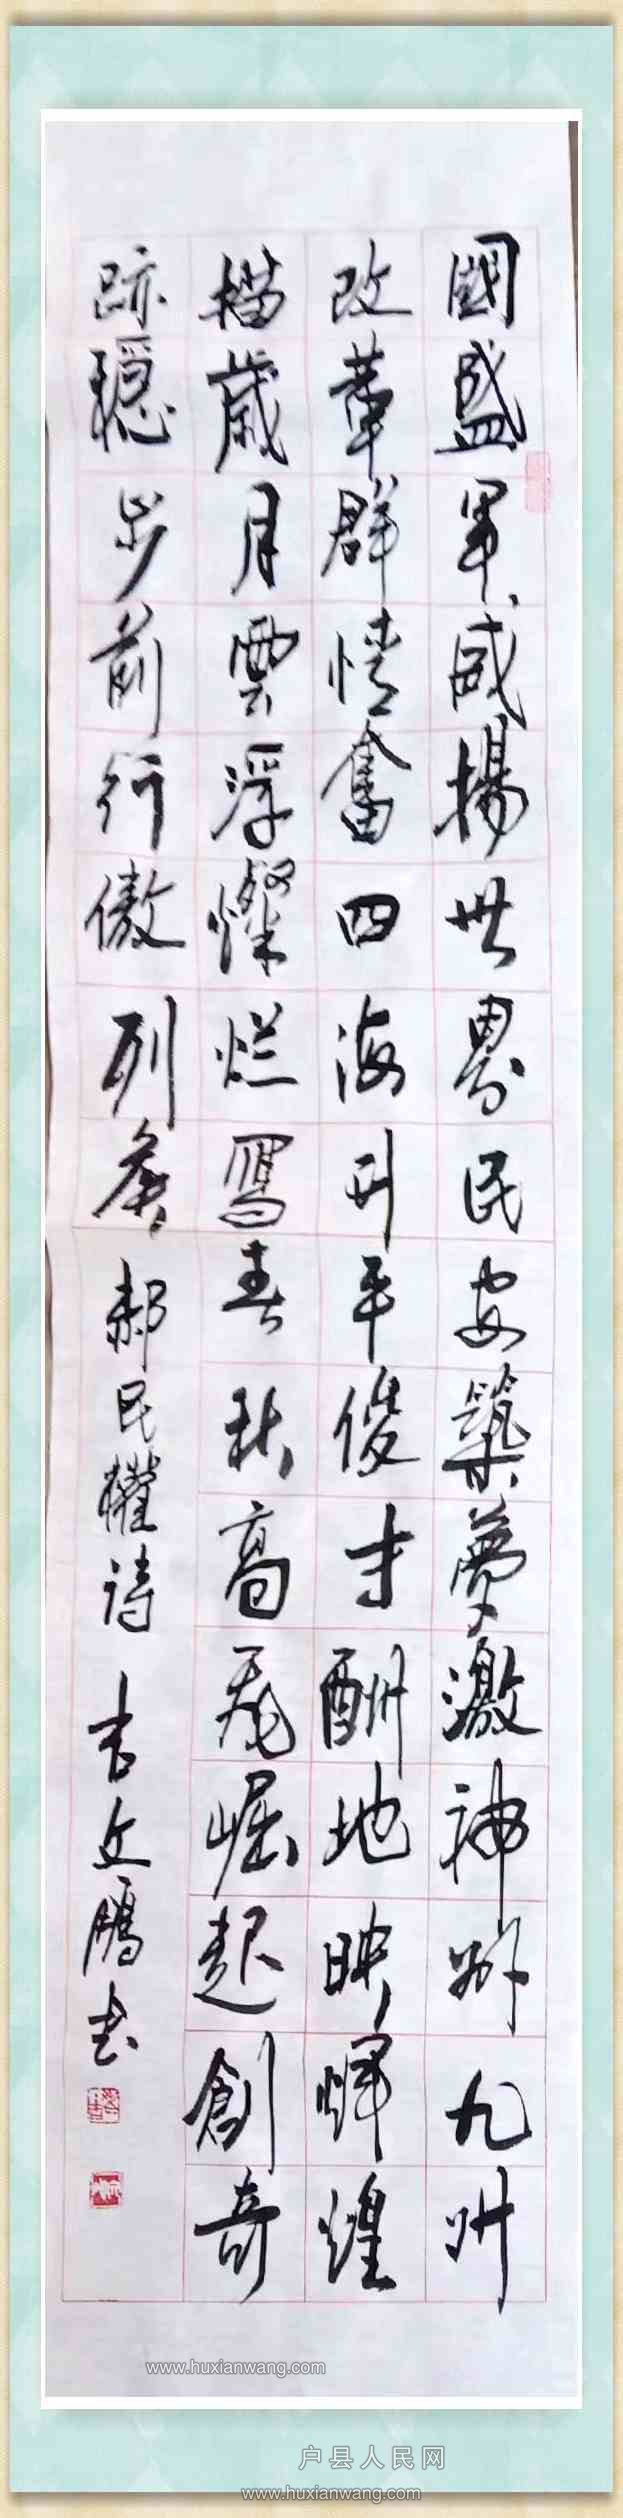 國盛軍威揚世界民安築夢激神州九州
改革群情奮四海升平俊才酬地映輝煌
描歲月雲浮燦烂寫春秋高飛崛起創奇
跡穩步前行傲列矦郝民權诗李文鵬书
www.huxianwang.com
户县人民网
www.huxianwang.com